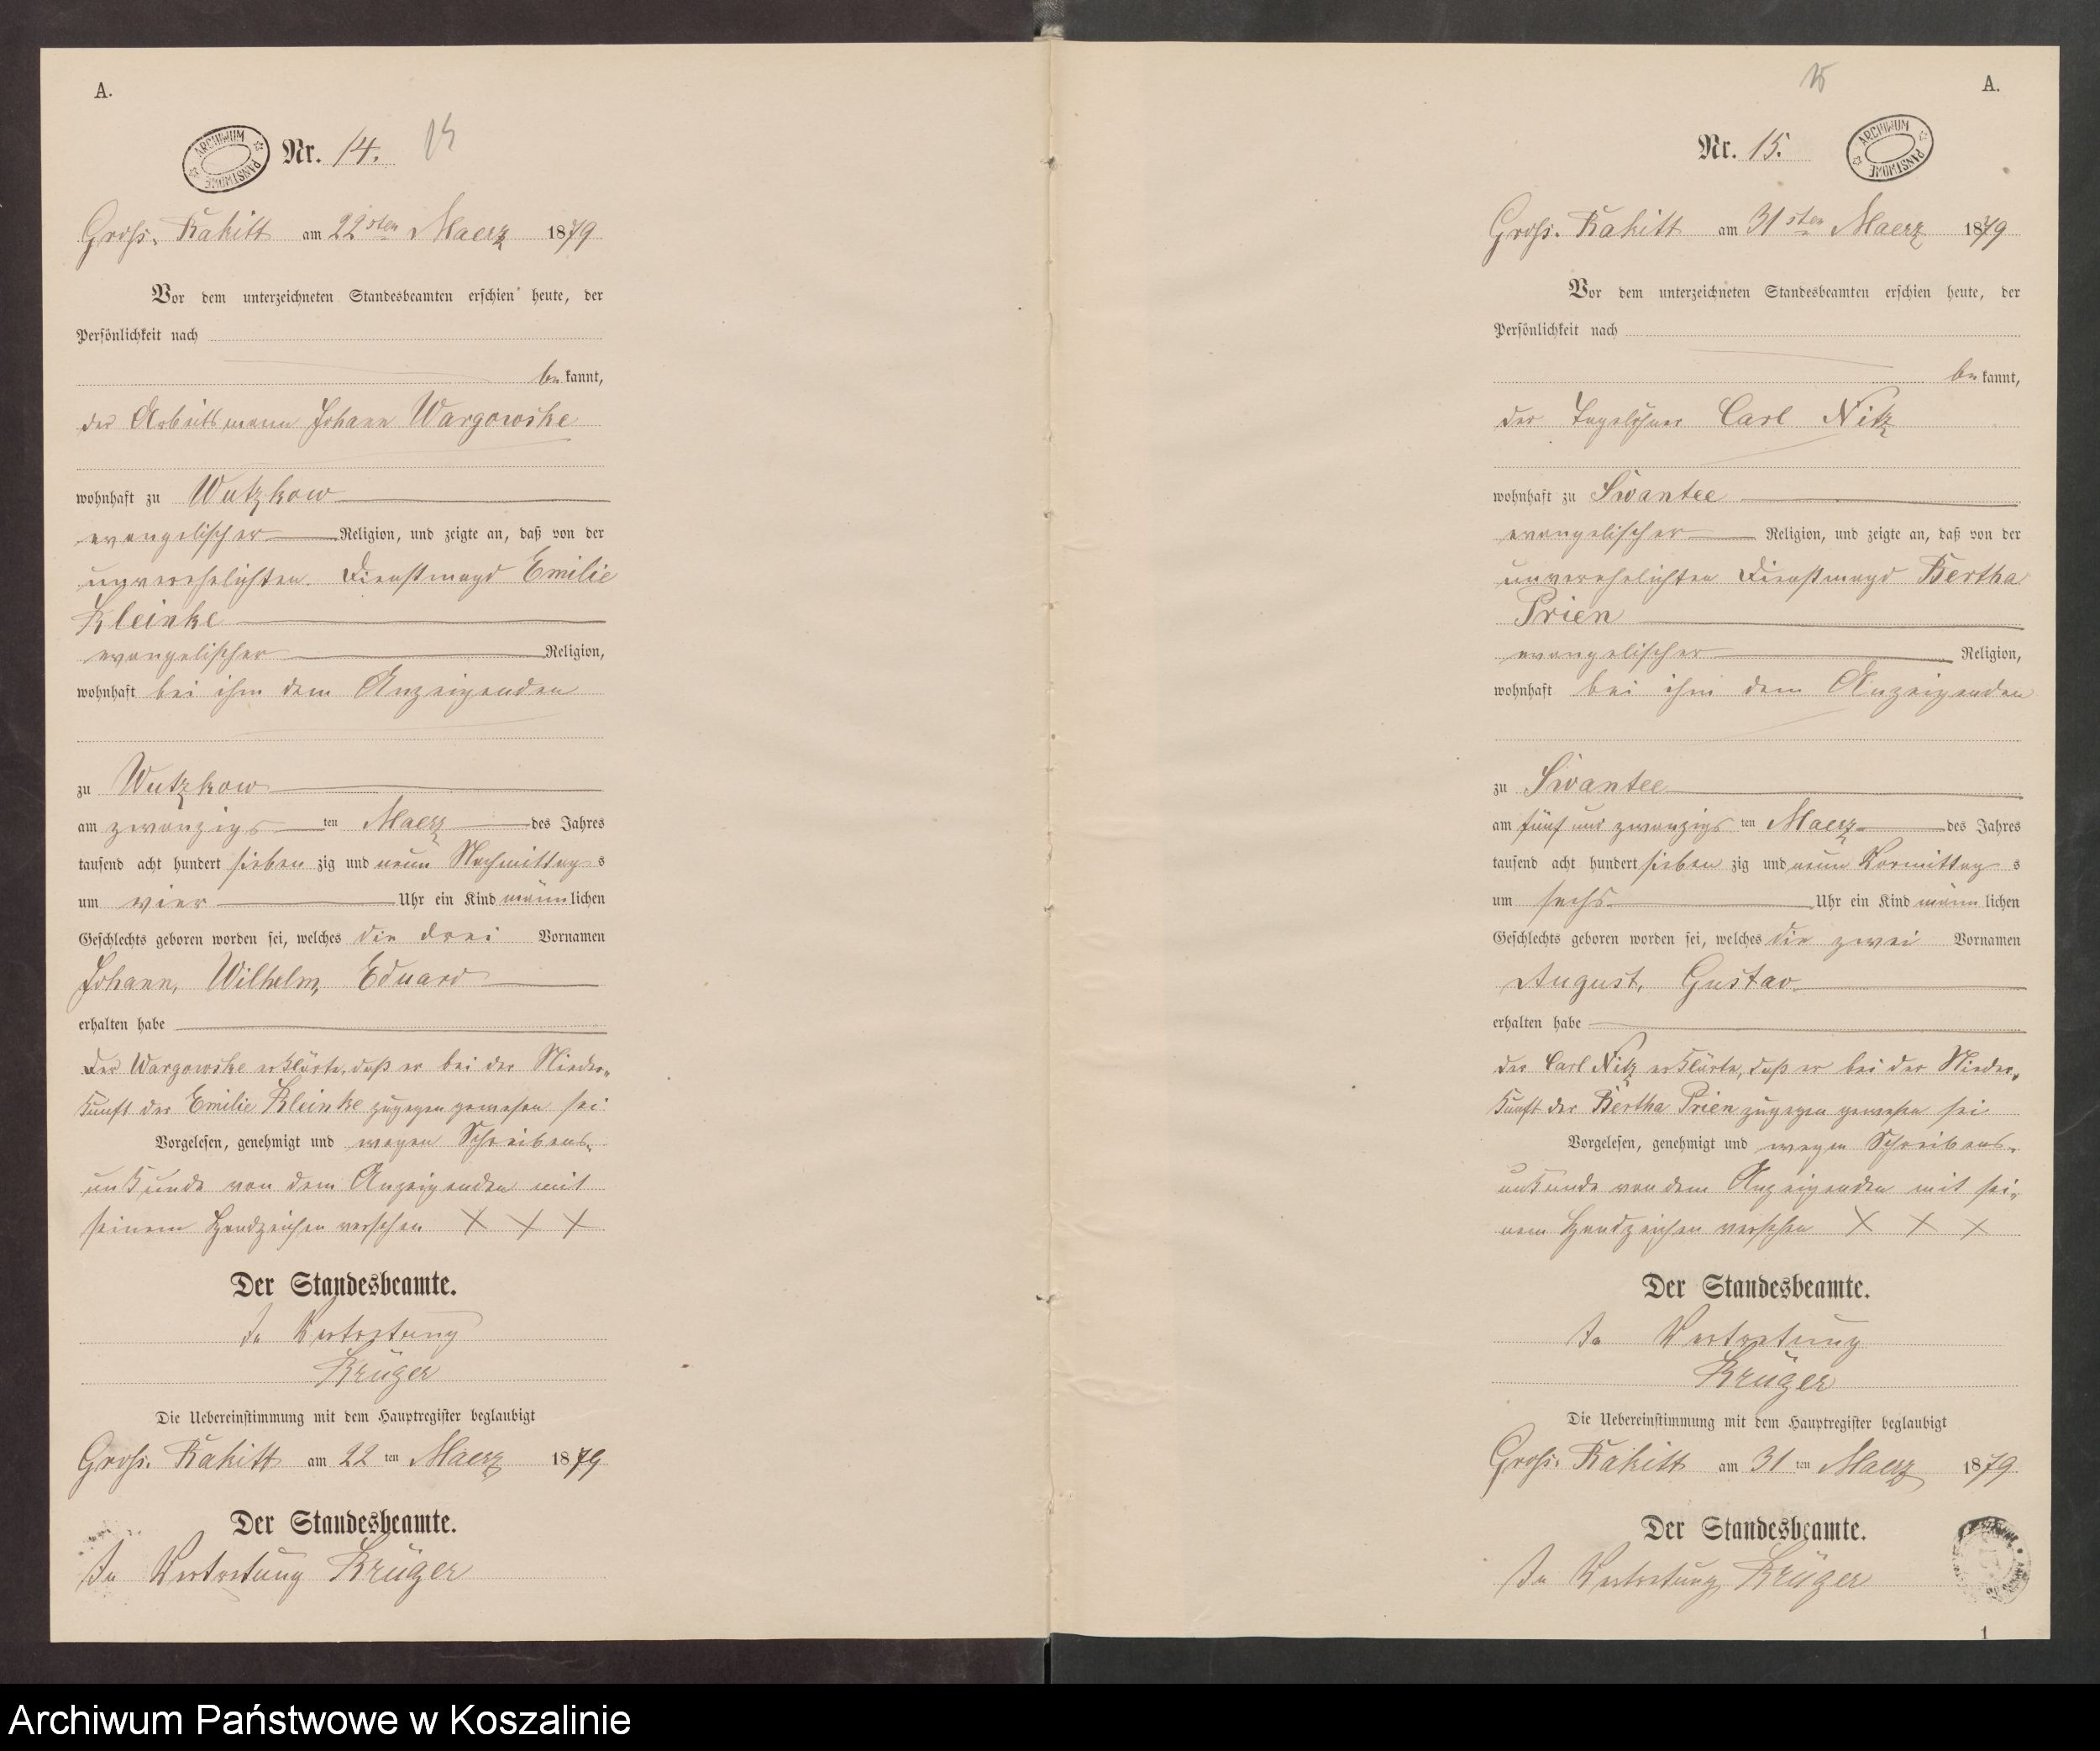 A.
ARCHIWUM PAŃSTWOWE
Nr. 14. 14
Gross. Rakitt am 22sten Maerz 1879
Vor dem unterzeichneten Standesbeamten erschien heute, der
Persönlichkeit nach
bekannt,
der Arbeitsmann Johann Wargowske
wohnhaft zu Wutzkow
evangelischer Religion, und zeigte an, daß von der
unverehelichten Dienstmagd Emilie
Kleinke
evangelischer Religion,
wohnhaft bei ihm dem Anzeigenden
zu Wutzkow
am zwanzigsten Maerz des Jahres
tausend acht hundert siebenzig und neun Nachmittags
um vier Uhr ein Kind männlichen
Geschlechts geboren worden sei, welches die drei Vornamen
Johann, Wilhelm, Eduard
erhalten habe
Der Wargowske erklärte, daß er bei der Nieder„
kunft der Emilie Kleinke zugegen gewesen sei
Vorgelesen, genehmigt und wegen Schreibens„
unkunde von dem Anzeigenden mit
seinem Handzeichen versehen X X X
Der Standesbeamte.
In Vertretung
Krüger
Die Uebereinstimmung mit dem Hauptregister beglaubigt
Gross. Rakitt am 22ten Maerz 1879
Der Standesbeamte.
In Vertretung Krüger
15 A.
Nr. 15.
ARCHIWUM PAŃSTWOWE
Gross. Rakitt am 31sten Maerz 1879
Vor dem unterzeichneten Standesbeamten erschien heute, der
Persönlichkeit nach
bekannt,
der Tagelöhner Carl Nitz
wohnhaft zu Swantee
evangelischer Religion, und zeigte an, daß von der
unverehelichten Dienstmagd Bertha
Prien
evangelischer Religion,
wohnhaft bei ihm dem Anzeigenden
zu Swantee
am fünf und zwanzigsten Maerz des Jahres
tausend acht hundert siebenzig und neun Vormittags
um sechs Uhr ein Kind männlichen
Geschlechts geboren worden sei, welches die zwei Vornamen
August, Gustav
erhalten habe
der Carl Nitz erklärte, daß er bei der Nieder„
kunft der Bertha Prien zugegen gewesen sei
Vorgelesen, genehmigt und wegen Schreibens„
unkunde von dem Anzeigenden mit sei„
nem Handzeichen versehen X X X
Der Standesbeamte.
In Vertretung
Krüger
Die Uebereinstimmung mit dem Hauptregister beglaubigt
Gross. Rakitt am 31ten Maerz 1879
Der Standesbeamte.
In Vertretung Krüger
1
Archiwum Państwowe w Koszalinie